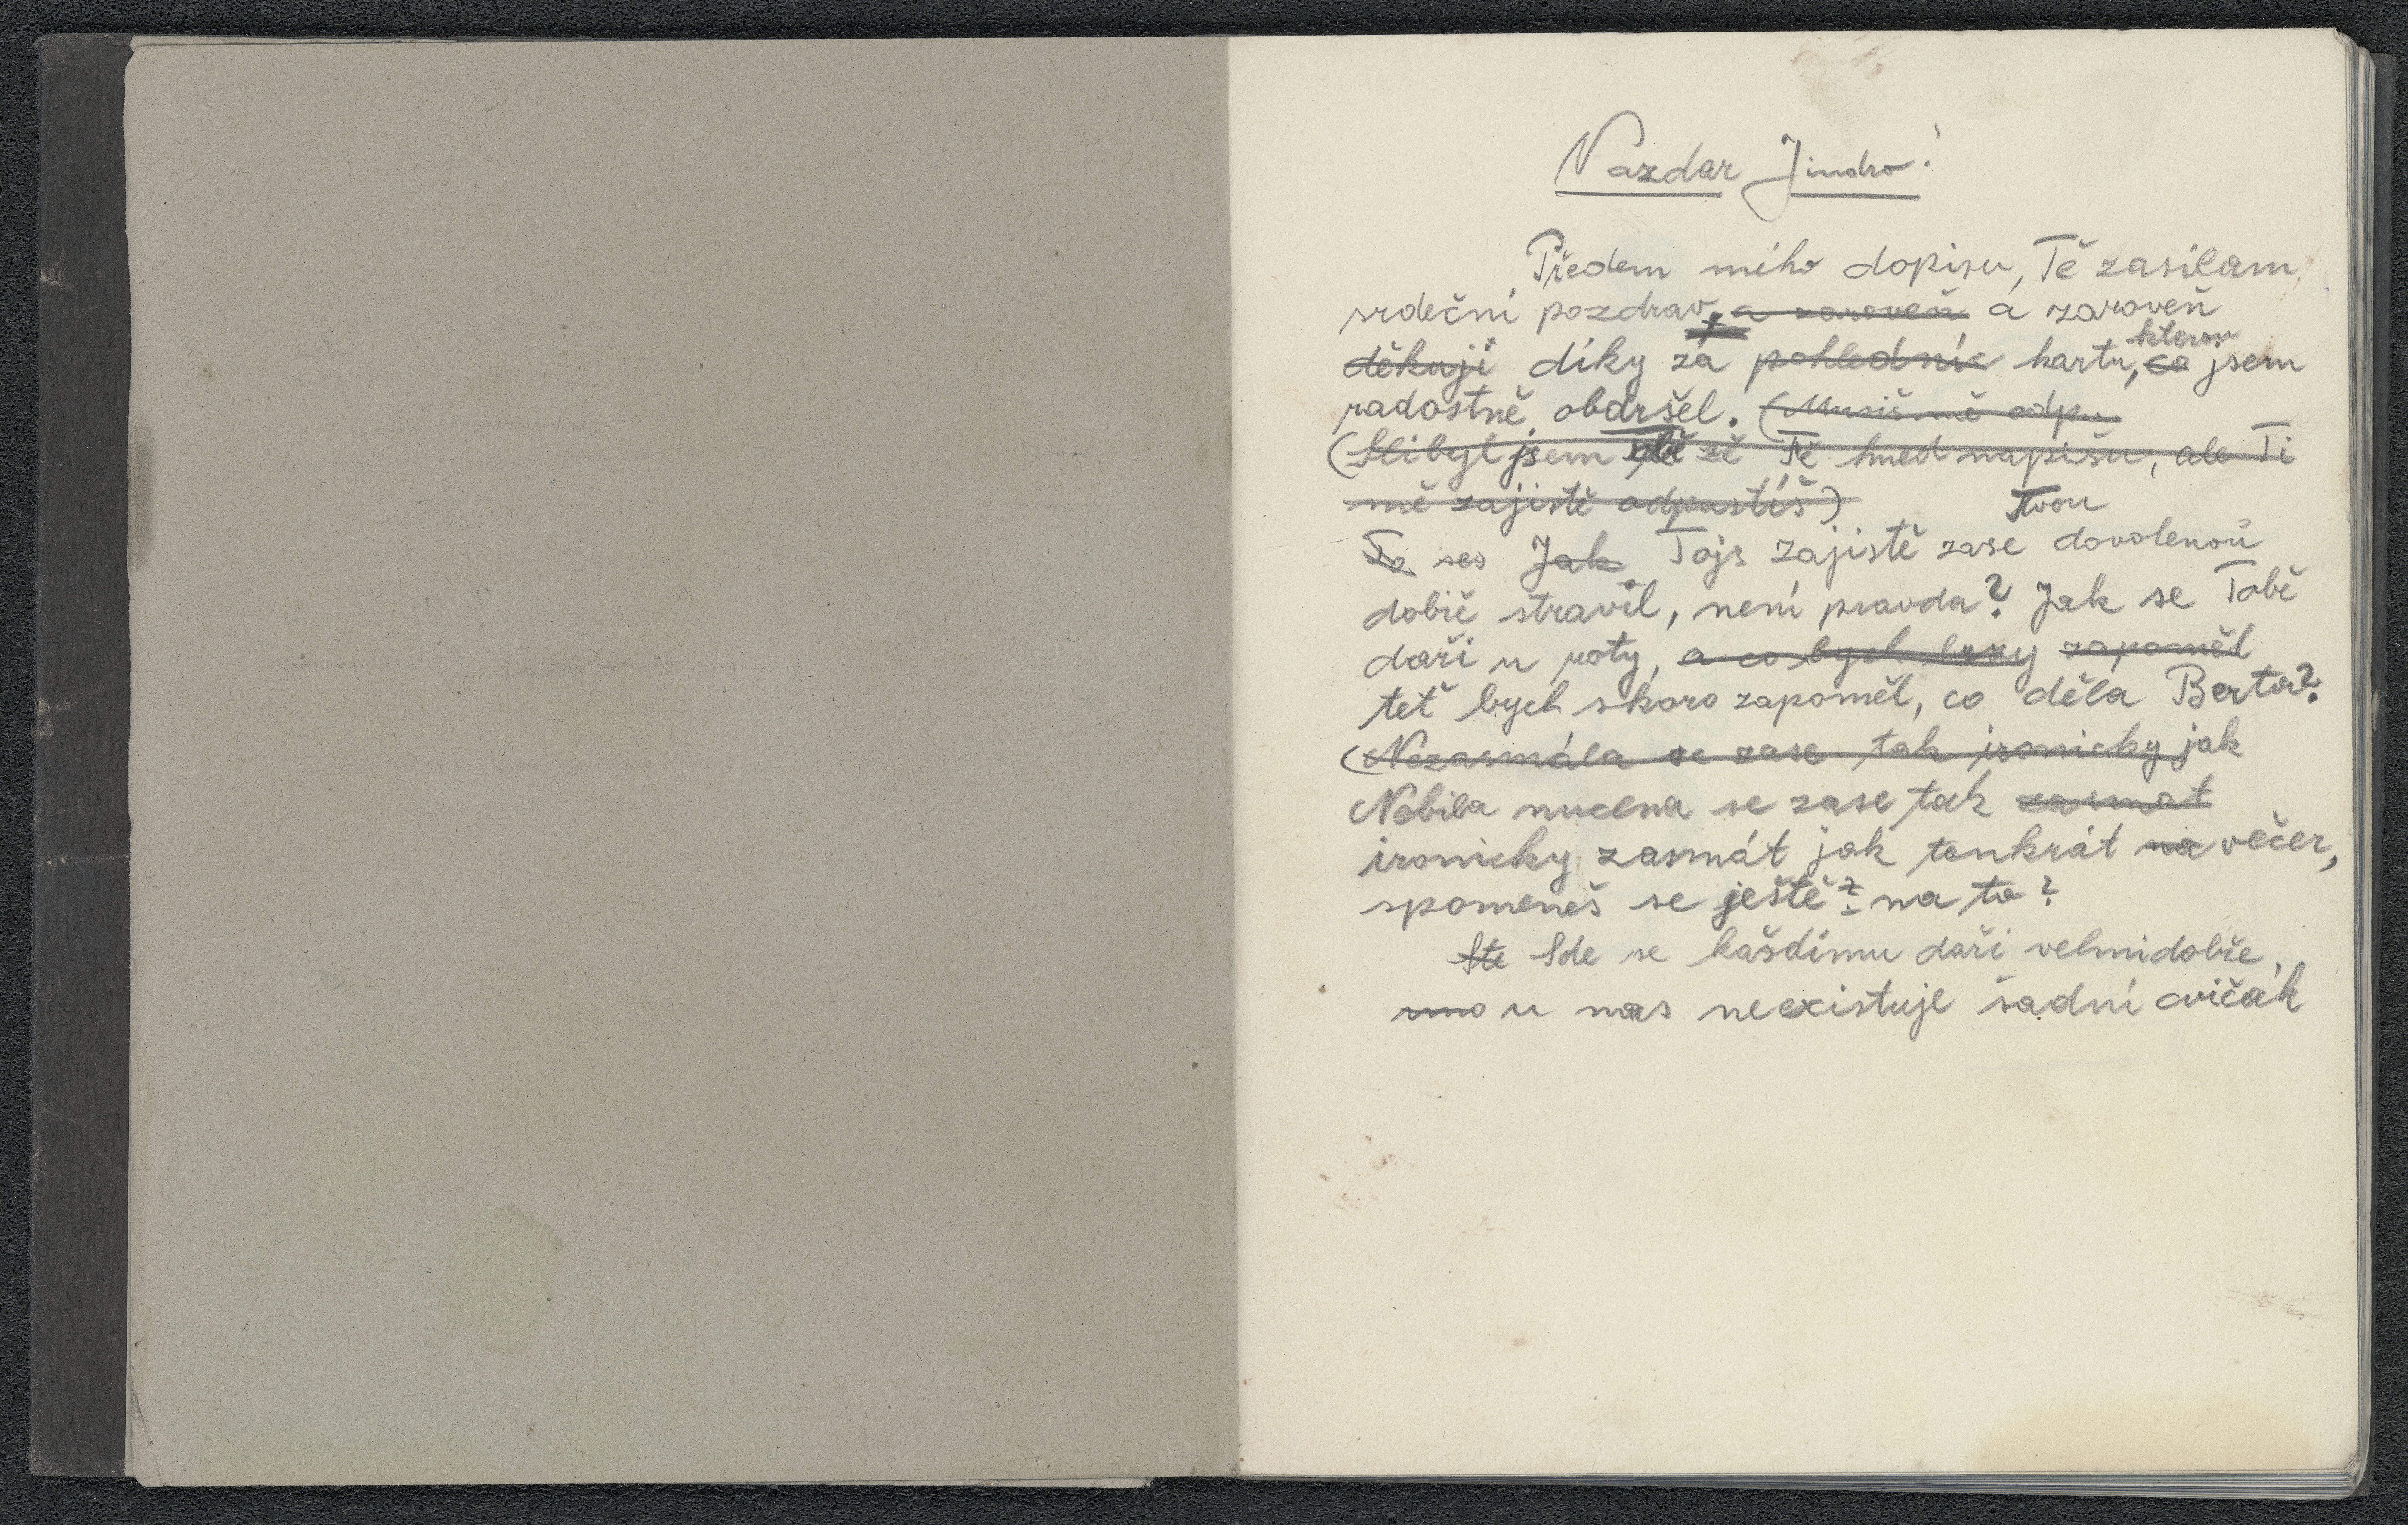 Nazdar Jindro!
Předem mího dopisu, Tě zasílam
srdečni pozdrav, a zaroveň a zaroveň
děkuji díky za pohlednic kartu, co kterou jsem
radostně obdršel. (Musiš mě odpu
(Slibyl jsem zě Tě hned napišu, ale Ti
mě zajistě odpustíš)
To ses Jak Tojs zajistě zase Tvou dovolenoů
dobiě stravil, neni pravda? Jak se Tobě
daři u roty, a co bych zapoměl
teť bych skoro zapoměl, co děla Berta?
(Nezasmála se zase tak ironicky jak
Nebila nucena se zase tak zasmat
ironicky zasmát jak tenkrát na večer,
spomeneš se ještě? na to?
Ste Sde se kašdímu daři velmidobře,
u nas neexistuje šadni cvičák